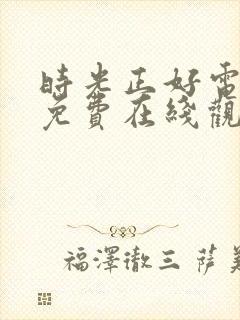 時光正好電
免費在綫觀
福澤徹三 薩美